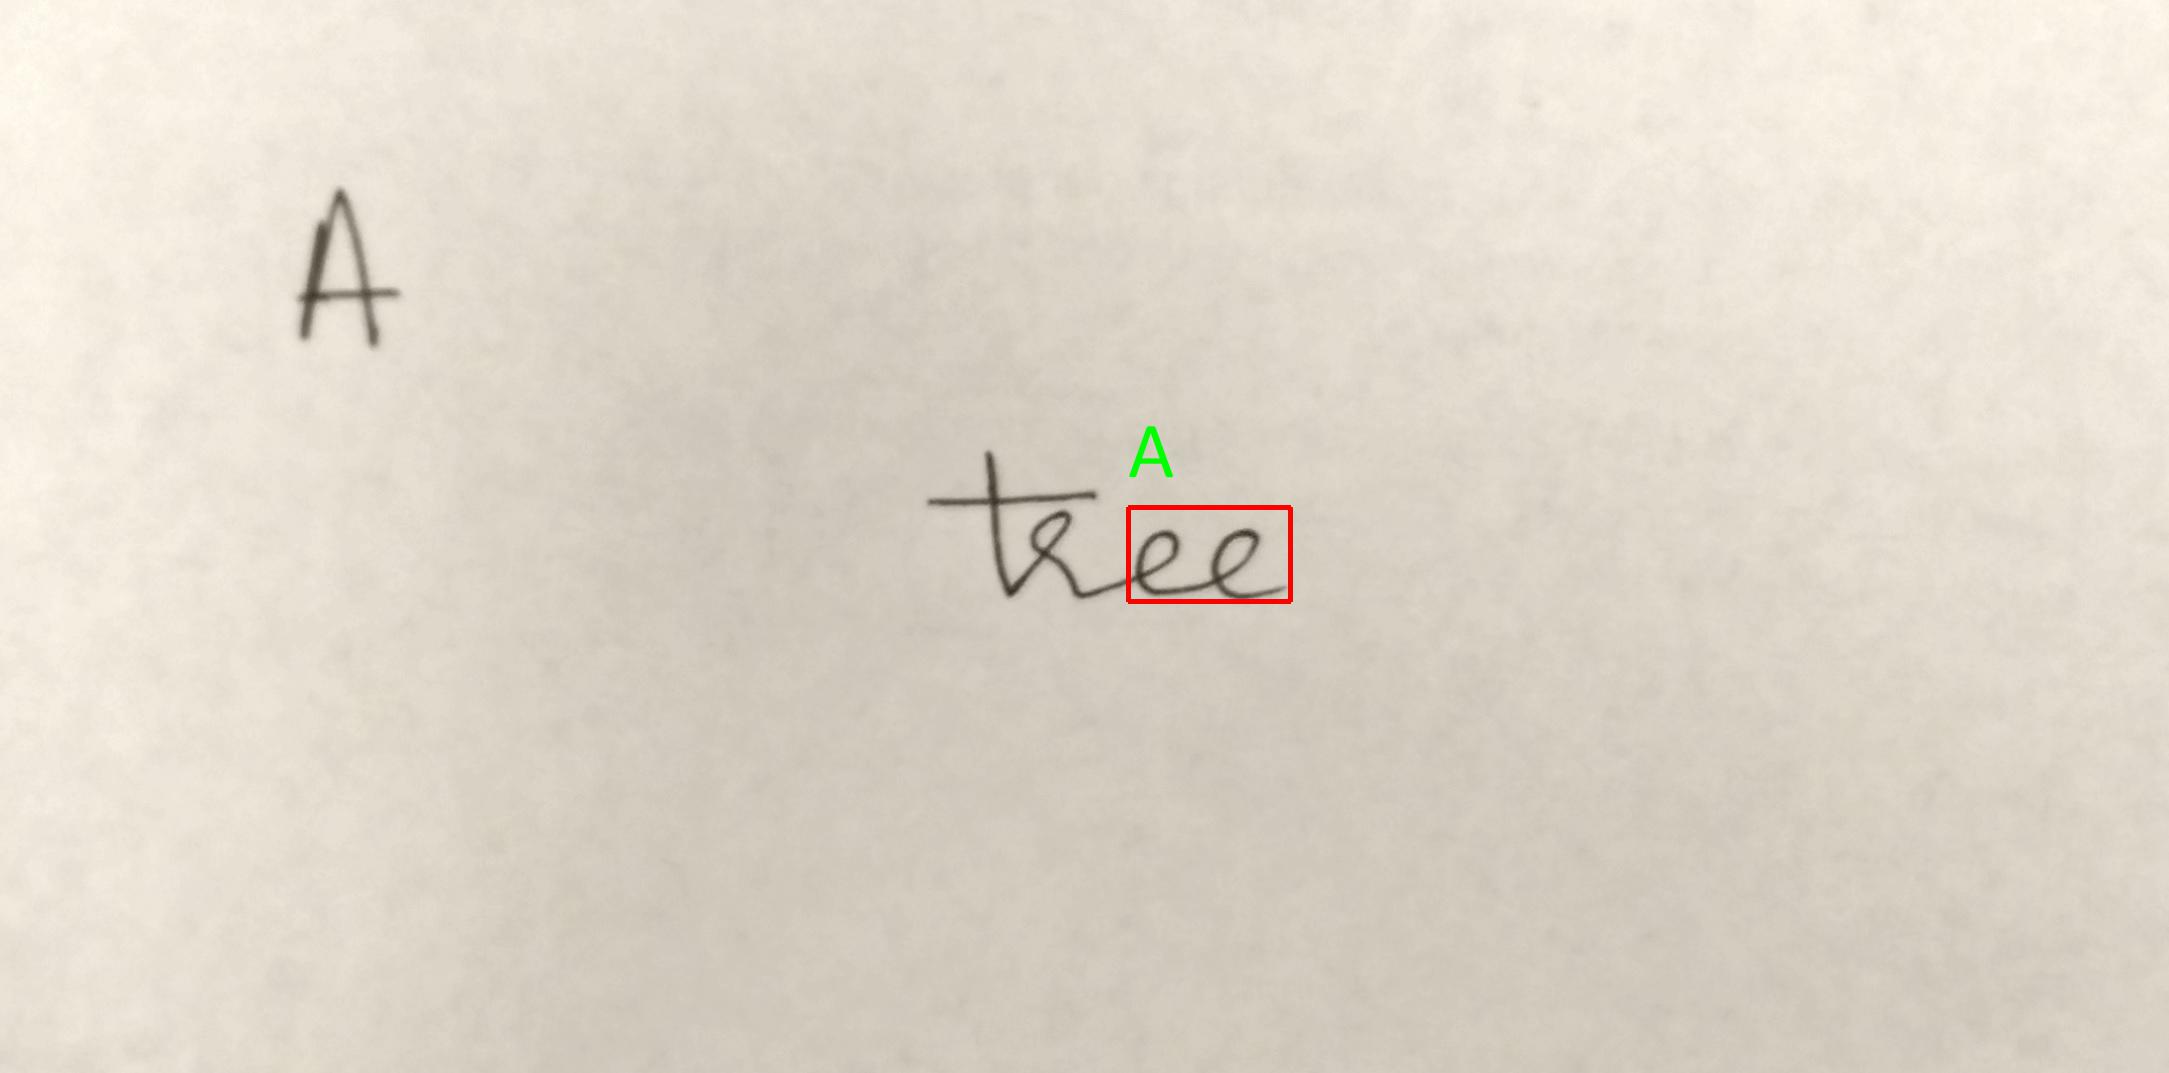 A
A
tree